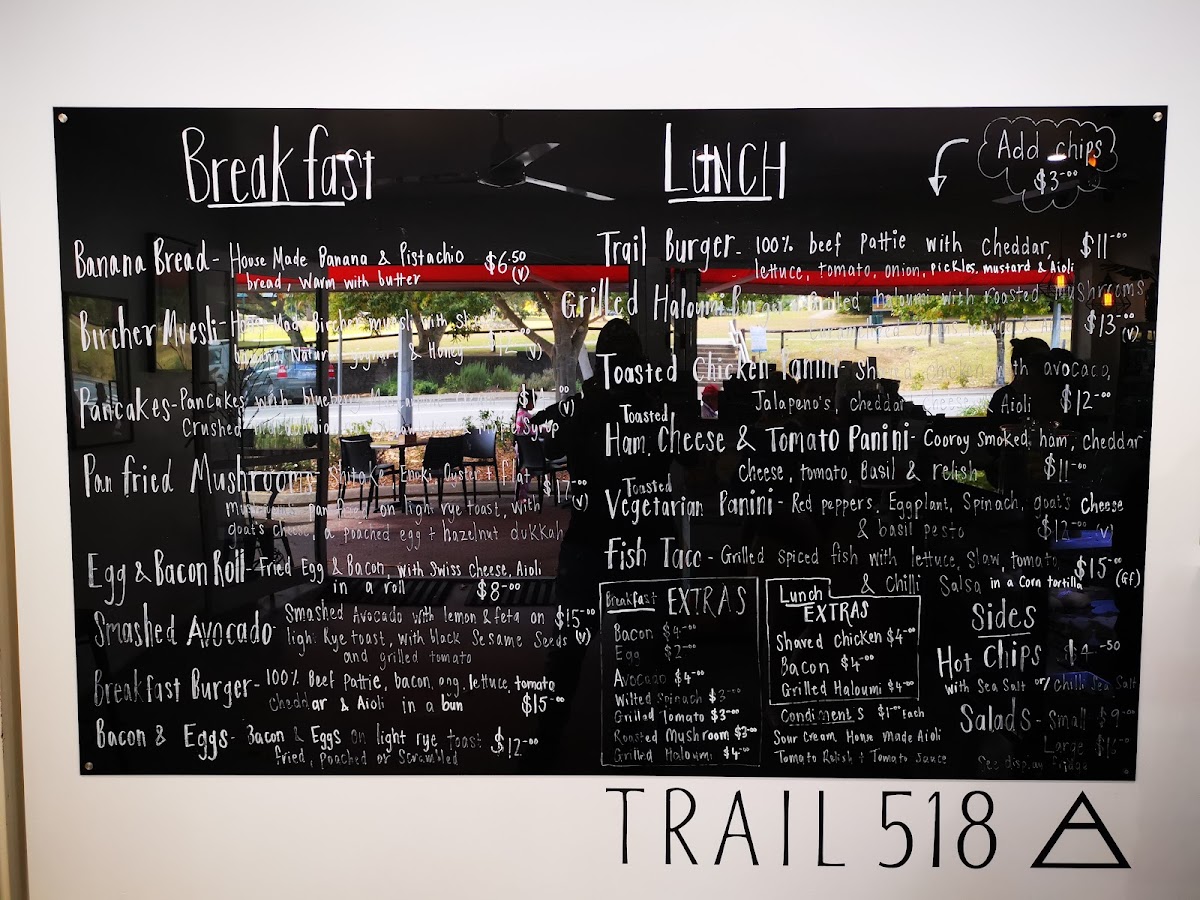 Breakfast
Banana Bread - House Made Banana & Pistachio $6.50
bread, warm with butter (v)
Bircher Muesli - House Made Bircher muesli with
banana, Natural & Honey (v)
Pancakes - Pancakes with blueberry
Crushed Syrup (v)
Pan fried Mushrooms - Shitake, Enoki, Oyster & flat $17.00
mushrooms pan fried on light rye toast, with (v)
goat's cheese, a poached egg + hazelnut dukkah
Egg & Bacon Roll - Fried Egg & Bacon, with Swiss cheese, Aioli
in a roll $8.00
Smashed Avocado - Smashed Avocado with lemon & feta on $15.00
light Rye toast, with black Sesame Seeds (v)
and grilled tomato
Breakfast Burger - 100% Beef Pattie, bacon, egg, lettuce, tomato
Cheddar & Aioli in a bun $15.00
Bacon & Eggs - Bacon & Eggs on light rye toast $12.00
fried, poached or Scrambled
LUNCH
Add chips
$3.00
Trail Burger - 100% beef pattie with cheddar, $11.00
lettuce, tomato, onion, pickles, mustard & Aioli
Grilled Haloumi Burger - Grilled haloumi with roasted mushrooms
$13.00 (v)
Toasted Chicken Panini - chicken with avocado,
Jalapeno's, cheddar Aioli $12.00
Toasted
Ham, Cheese & Tomato Panini - Cooroy Smoked ham, cheddar
cheese, tomato, Basil & relish $11.00
Toasted
Vegetarian Panini - Red peppers, Eggplant, Spinach, goat's cheese
& basil pesto $12.00 (v)
Fish Taco - Grilled spiced fish with lettuce, Slaw, tomato $15.00
& Chilli Salsa in a Corn tortilla (Gf)
Breakfast EXTRAS
Bacon $4.00
Egg $2.00
Avocado $4.00
Wilted Spinach $3.00
Grilled Tomato $3.00
Roasted Mushroom $3.00
Grilled Haloumi $4.00
Lunch
EXTRAS
Shaved Chicken $4.00
Bacon $4.00
Grilled Haloumi $4.00
Condiments $1.00 Each
Sour Cream, House made Aioli
Tomato Relish + Tomato Sauce
Sides
Hot Chips $4.50
with Sea Salt or Chilli Sea Salt
Salads - Small $9.00
Large
See display fridge
TRAIL 518